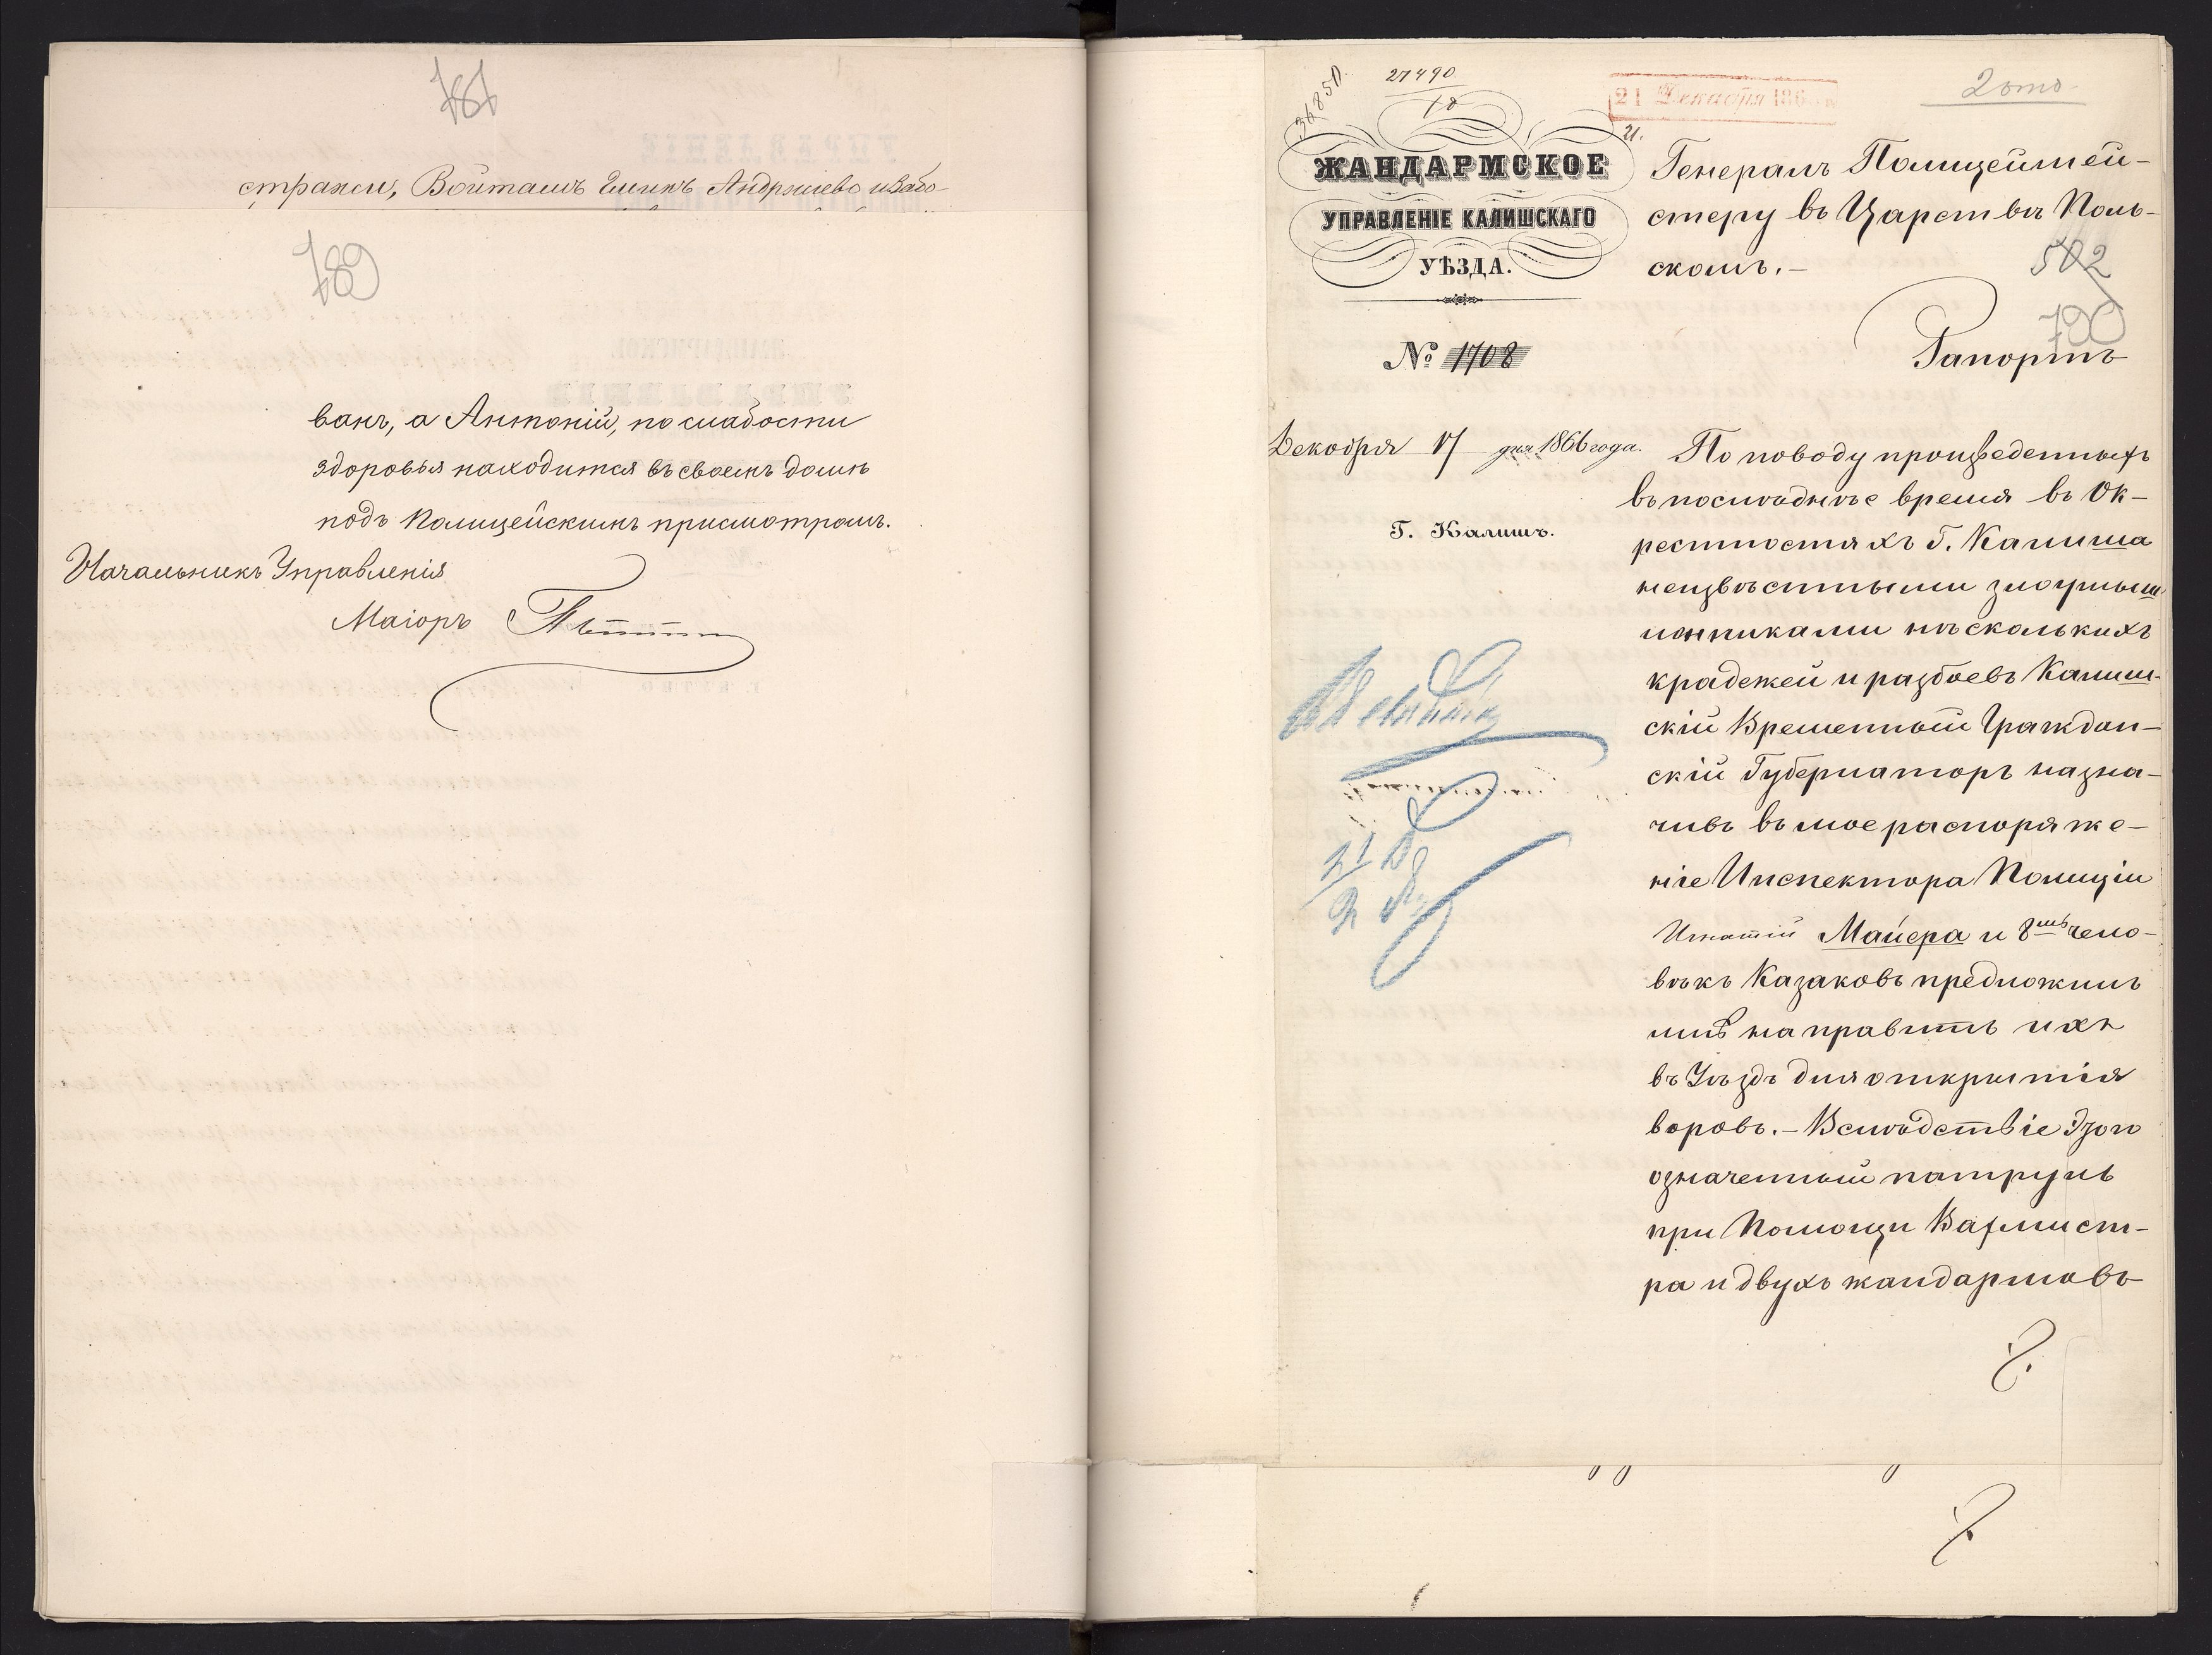 781
стражи, Войтамъ Гминъ Андржиево и Вабо-
789
ванъ, а Антоній, по слабости
здоровья находится въ своемъ домѣ
подъ Полицейскимъ присмотромъ.
Начальникъ Управленія
Маіоръ
27490
18
21 Декабря 186
2 отд.
21.
ЖАНДАРМСКОЕ
УПРАВЛЕНІЕ КАЛИШСКАГО
УѢЗДА.
№ 1708
Декабря 17 дня 1866 года.
Г. Калишъ.
Генералъ Полицеймей-
стеру въ Царствѣ Поль-
скомъ.-
502
790
Рапортъ
По поводу произведенныхъ
въ послѣднее время въ Ок-
рестностяхъ Г. Калиша
неизвѣстными злоумыш
ленниками нѣсколькихъ
крадежей и разбоевъ Калиш-
скій Временный Граждан-
скій Губернаторъ назна-
чивъ въ мое распоряже-
ніе Инспектора Полиціи
Игнатій Майера и 8мь чело-
вѣкъ Казаковъ предложилъ
мнѣ направить ихъ
въ Уѣздъ для открытія
воровъ.- Вслѣдствіе Этого
означенный патруль
при Помощи Вахмист-
ра и двухъ жандармовъ